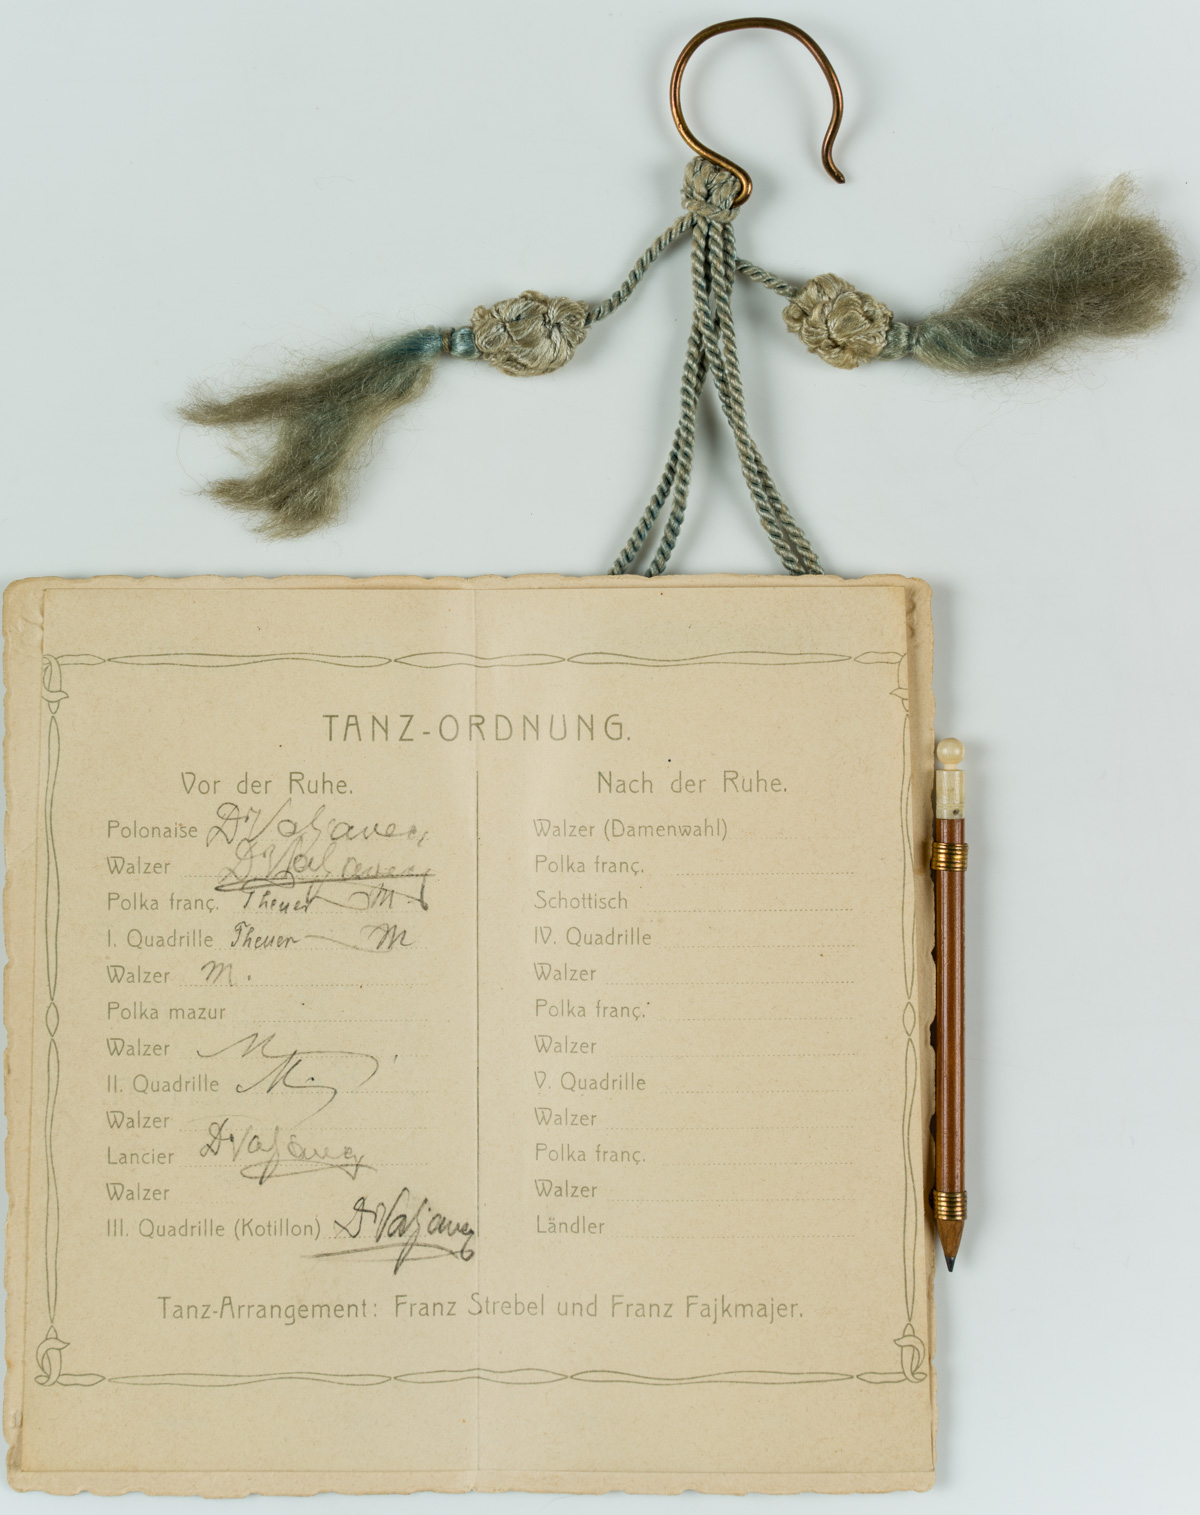 TANZ-ORDNUNG.
Vor der Ruhe.
Polonaise Dr Valjavec
Walzer Dr Valjavec
Polka franç. Theuer M.
I. Quadrille Theuer M
Walzer M.
Polka mazur
Walzer M
II. Quadrille M.
Walzer
Lancier Dr Valjavec
Walzer
III. Quadrille (Kotillon) Dr Valjavec
Nach der Ruhe.
Walzer (Damenwahl)
Polka franç.
Schottisch
IV. Quadrille
Walzer
Polka franç.
Walzer
V. Quadrille
Walzer
Polka franç.
Walzer
Ländler
Tanz-Arrangement: Franz Strebel und Franz Fajkmajer.